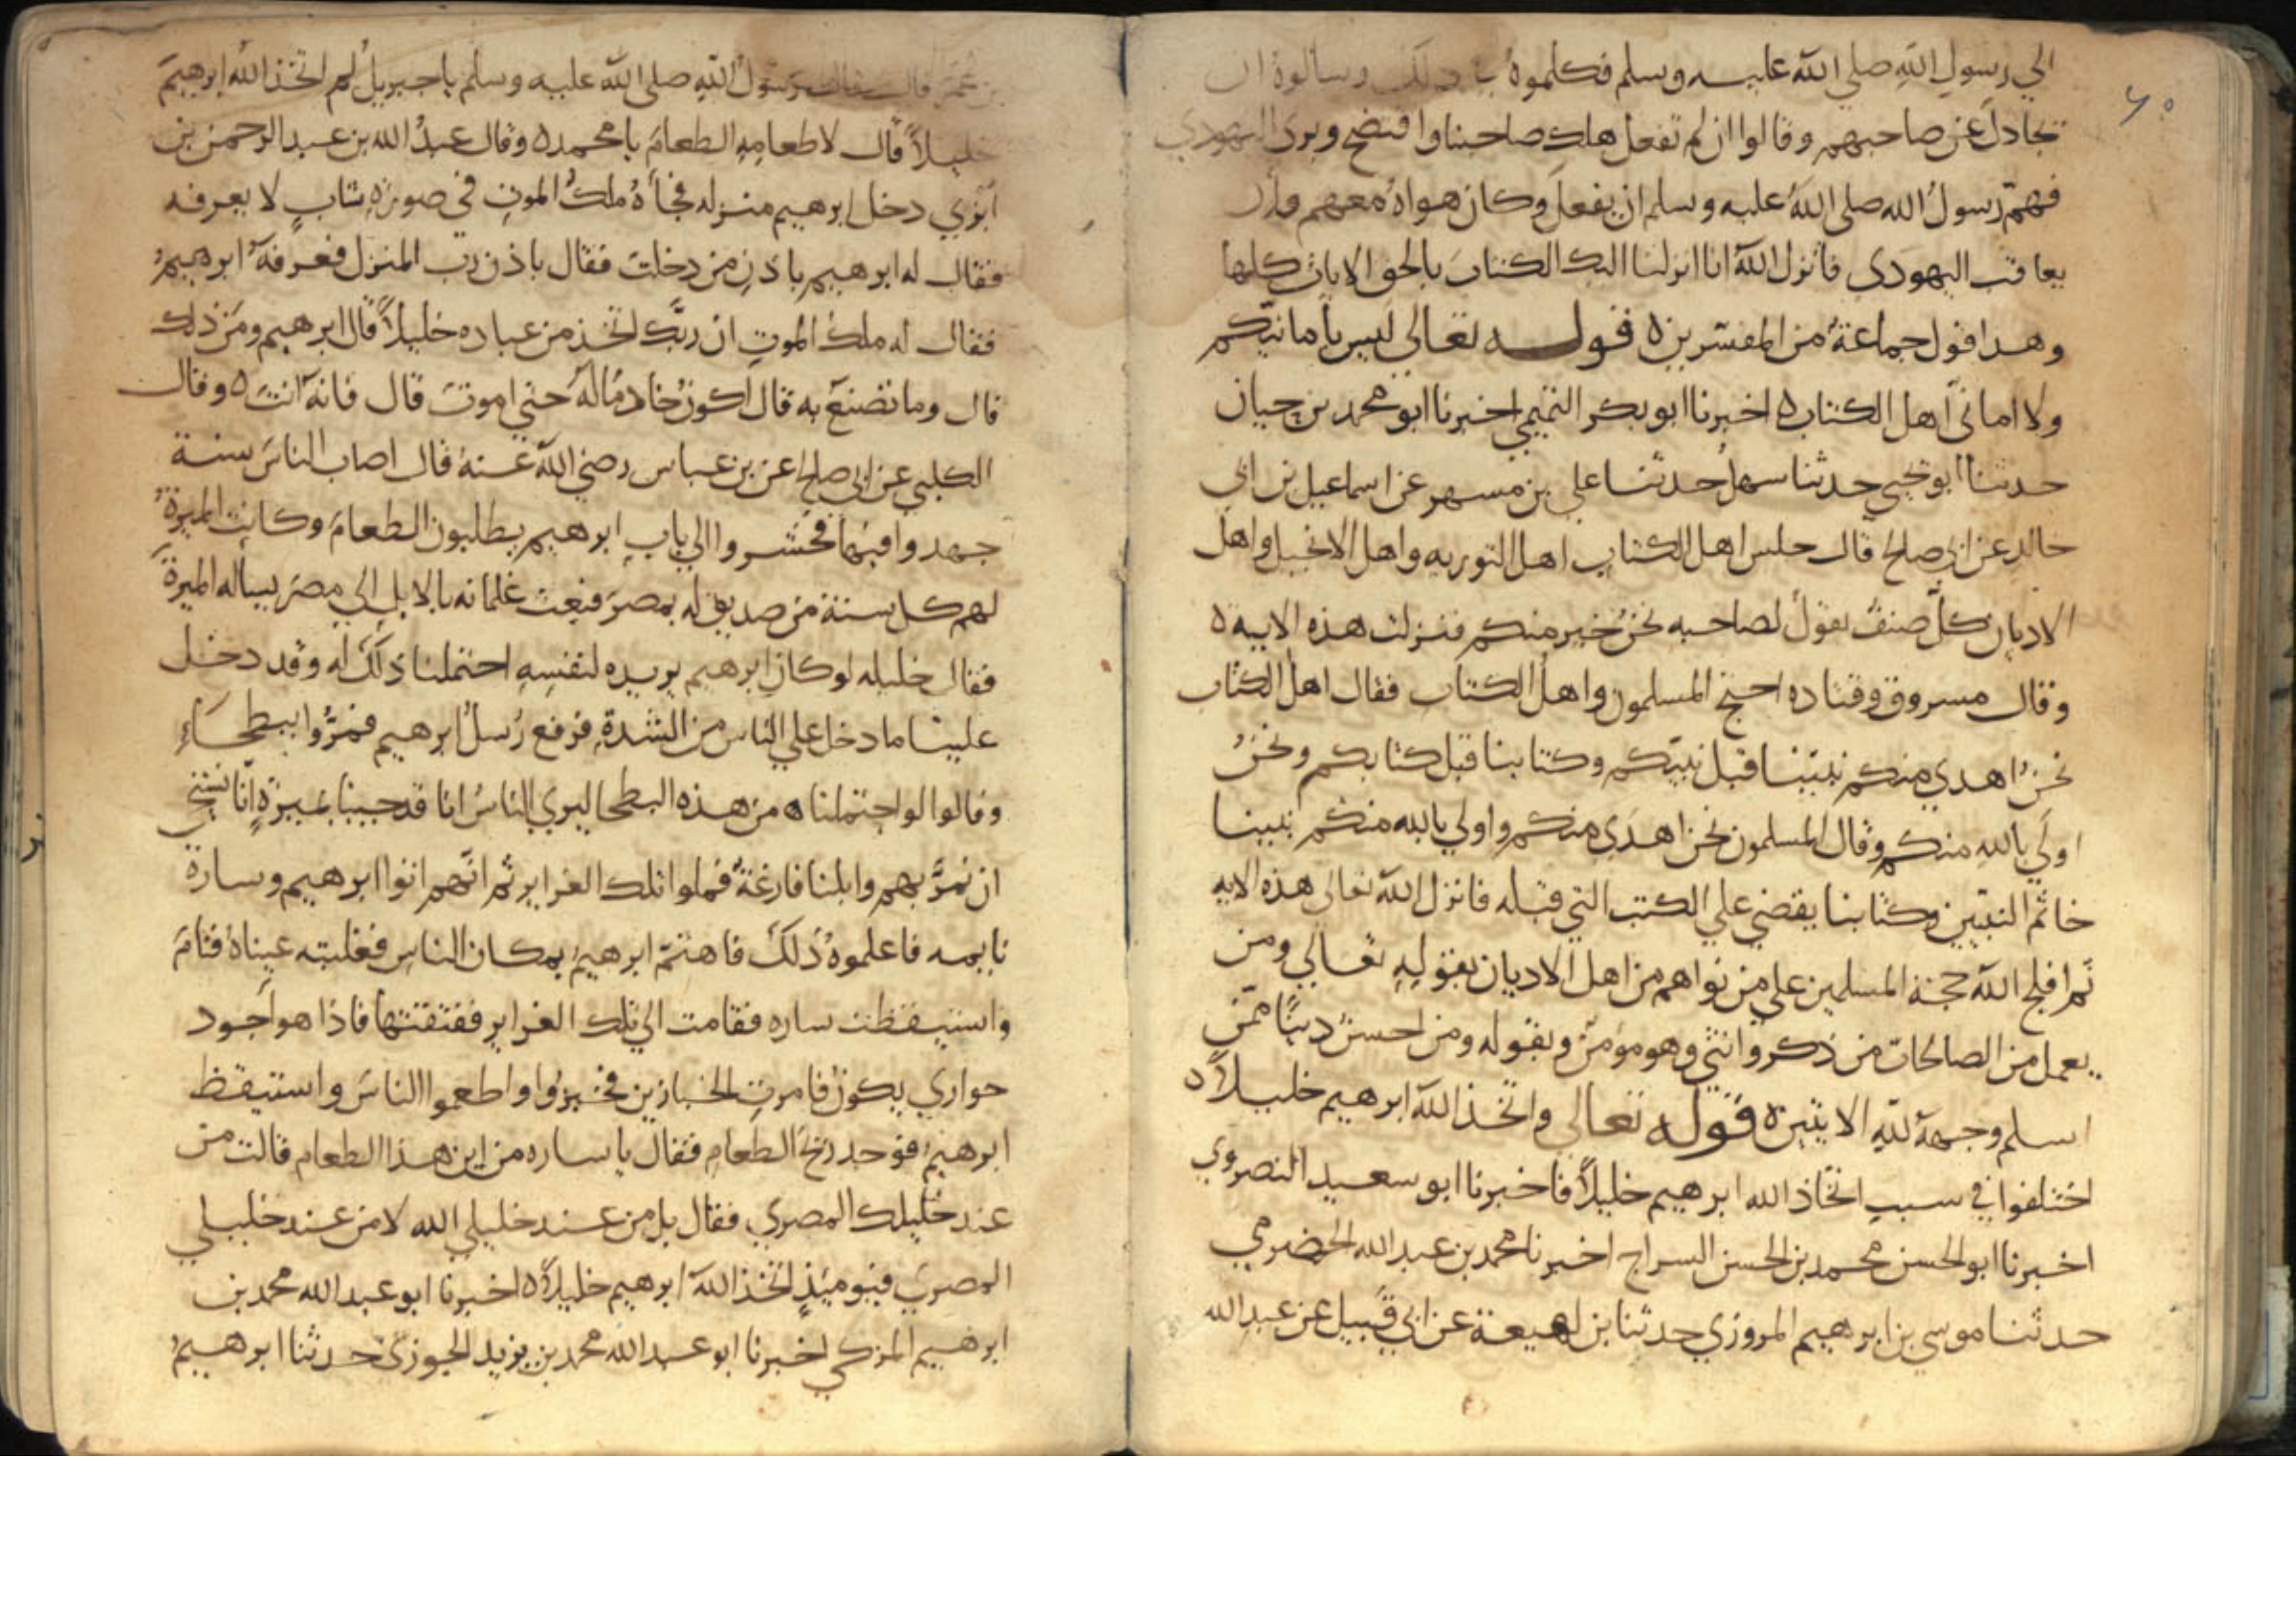 ٦٥
الي رسولِ اللهِ صلي الله عليه وسلم فكلموهُ في ذلك وسالوه ان
تجادل عن صاحبهم وقالوا ان لم تفعل هلك صاحبنا وافتضح وبرى اليهودي
فهمّ رسولُ الله صلى اللهُ عليه وسلم ان يفعل وكان هواهُ معهم وان
يعاقب اليهودى فانزل الله انا انزلنا اليك الكتابَ بالحق الايات كلها
وهذا قول جماعةٌ من المفسرين ه قوله تعالي ليس بأمانيّكم
ولا امانىّ اهل الكتاب ه اخبرنا ابو بكر التميمي اخبرنا ابو محمد بن حيان
حدثنا ابو يحيي حدثنا سهلُ حدثنا علي بن مسهر عن اسماعيل بن ابي
خالدٍ عن ابي صالح قال جلس اهل الكتاب اهل التوريه واهل الانجيل واهل
الاديان كلّ صنفٌ يقولُ لصاحبه نحنُ خير منكم فنزلت هذه الايه ه
وقال مسروق وقتاده احتج المسلمون واهلُ الكتاب فقال اهل الكتاب
نحنُ اهدي منكم نبيّنا قبل نبيّكم وكتابنا قبل كتابكم ونحنُ
اولَي باللهِ منكم وقال المسلمون نحن اهدَى منكم واولي بالله منكم نبينا
خاتم النبيّين وكتابنا يقضي علي الكتب التي قبله فانزل الله تعالى هذه الايه
ثم افلج الله حجة المسلمين علي من نواهم من اهل الاديان بقولِهِ تعالي ومن
يعمل من الصالحات من ذكر وانثي وهو مومنٌ وبقوله ومن احسنُ دينًا ممّن
اسلم وجههُ للهِ الايتين ه قوله تعالي واتخذ اللهُ ابرهيم خليلاً ه
اختلفوا في سبب اتخاذ الله ابرهيم خليلاً فاخبرنا ابو سعيد النصروي
اخبرنا ابو الحسن محمد بن الحسن السراج اخبرنا محمد بن عبد الله الحضرمي
حدثنا موسي بن ابرهيم المروزي حدثنا بن لهيعة عن ابي قَبيل عن عبد الله
بن عُمَر قال قال رسولُ اللهِ صلى الله عليه وسلم يا جبريلُ لم اتخذ اللهُ ابرهيمَ
خليلاً قال لاطعامِهِ الطعامَ يا محمد ه وقال عبدُ الله بن عبد الرحمن بن
أبْزي دخل ابرهيم منزله فجأهُ ملكُ الموتِ في صورةِ شابٍ لا يعرفه
فقال له ابرهيم باذنِ من دخلت فقال باذن رب المنزل فعرفهُ ابرهيمُ
فقال له ملكُ الموتِ ان ربَّك اتخذ من عباده خليلاً قال ابرهيم ومَن ذلك
قال وما تصنعُ به قال اكونُ خادمًا لهُ حتي اموتَ قال فانه انتَ ه وقال
الكلبي عن ابي صالح عن بن عباس رضي الله عنهُ قال اصاب الناسَ سنة
جهدوا فيها فحشروا الي بابِ ابرهيم يطلبون الطعامَ وكانت الميرةُ
لهم كل سنة من صديقٍ له بمصرَ فبعث غلمانه بالابلِ الي مصرَ يساله الميرةَ
فقال خليله لو كان ابرهيم يريده لنفسِهِ احتملنا ذلكَ له وقد دخل
علينا ما دخل علي الناس من الشدةِ فرفع رُسلُ ابرهيم فمرُّوا ببطحَاءِ
وقالوا لو احتملنا ه من هذه البطحا ليري الناسُ انا قد جينا بميرةٍ انّا نستحيي
ان نمرَّ بهم وابلنا فارغةٌ فملوا تلك الغراير ثم انّهم اتوا ابرهيم وسارة
نايمه فاعلموهُ ذلكَ فاهتمّ ابرهيمُ بمكان الناسِ فغلبته عيناهُ فنامَ
واستيقظت ساره فقامت الي تلك الغراير ففتقتها فاذا هو اجود
حواري يكونُ فامرتِ الخبازين فخبزُوا واطعموا الناسَ واستيقظ
ابرهيمُ فوجد ريحَ الطعامِ فقال يا ساره من اين هذا الطعام قالت من
عند خليلك المصري فقال بل من عند خليلي الله لا من عند خليلي
المصري فيوميَذٍ اتخذ اللهُ ابرهيم خليلاً ه اخبرنا ابو عبد الله محمد بن
ابرهيم المزكي اخبرنا ابو عبد الله محمد بن يزيد الجوزى حدثنا ابرهيمُ